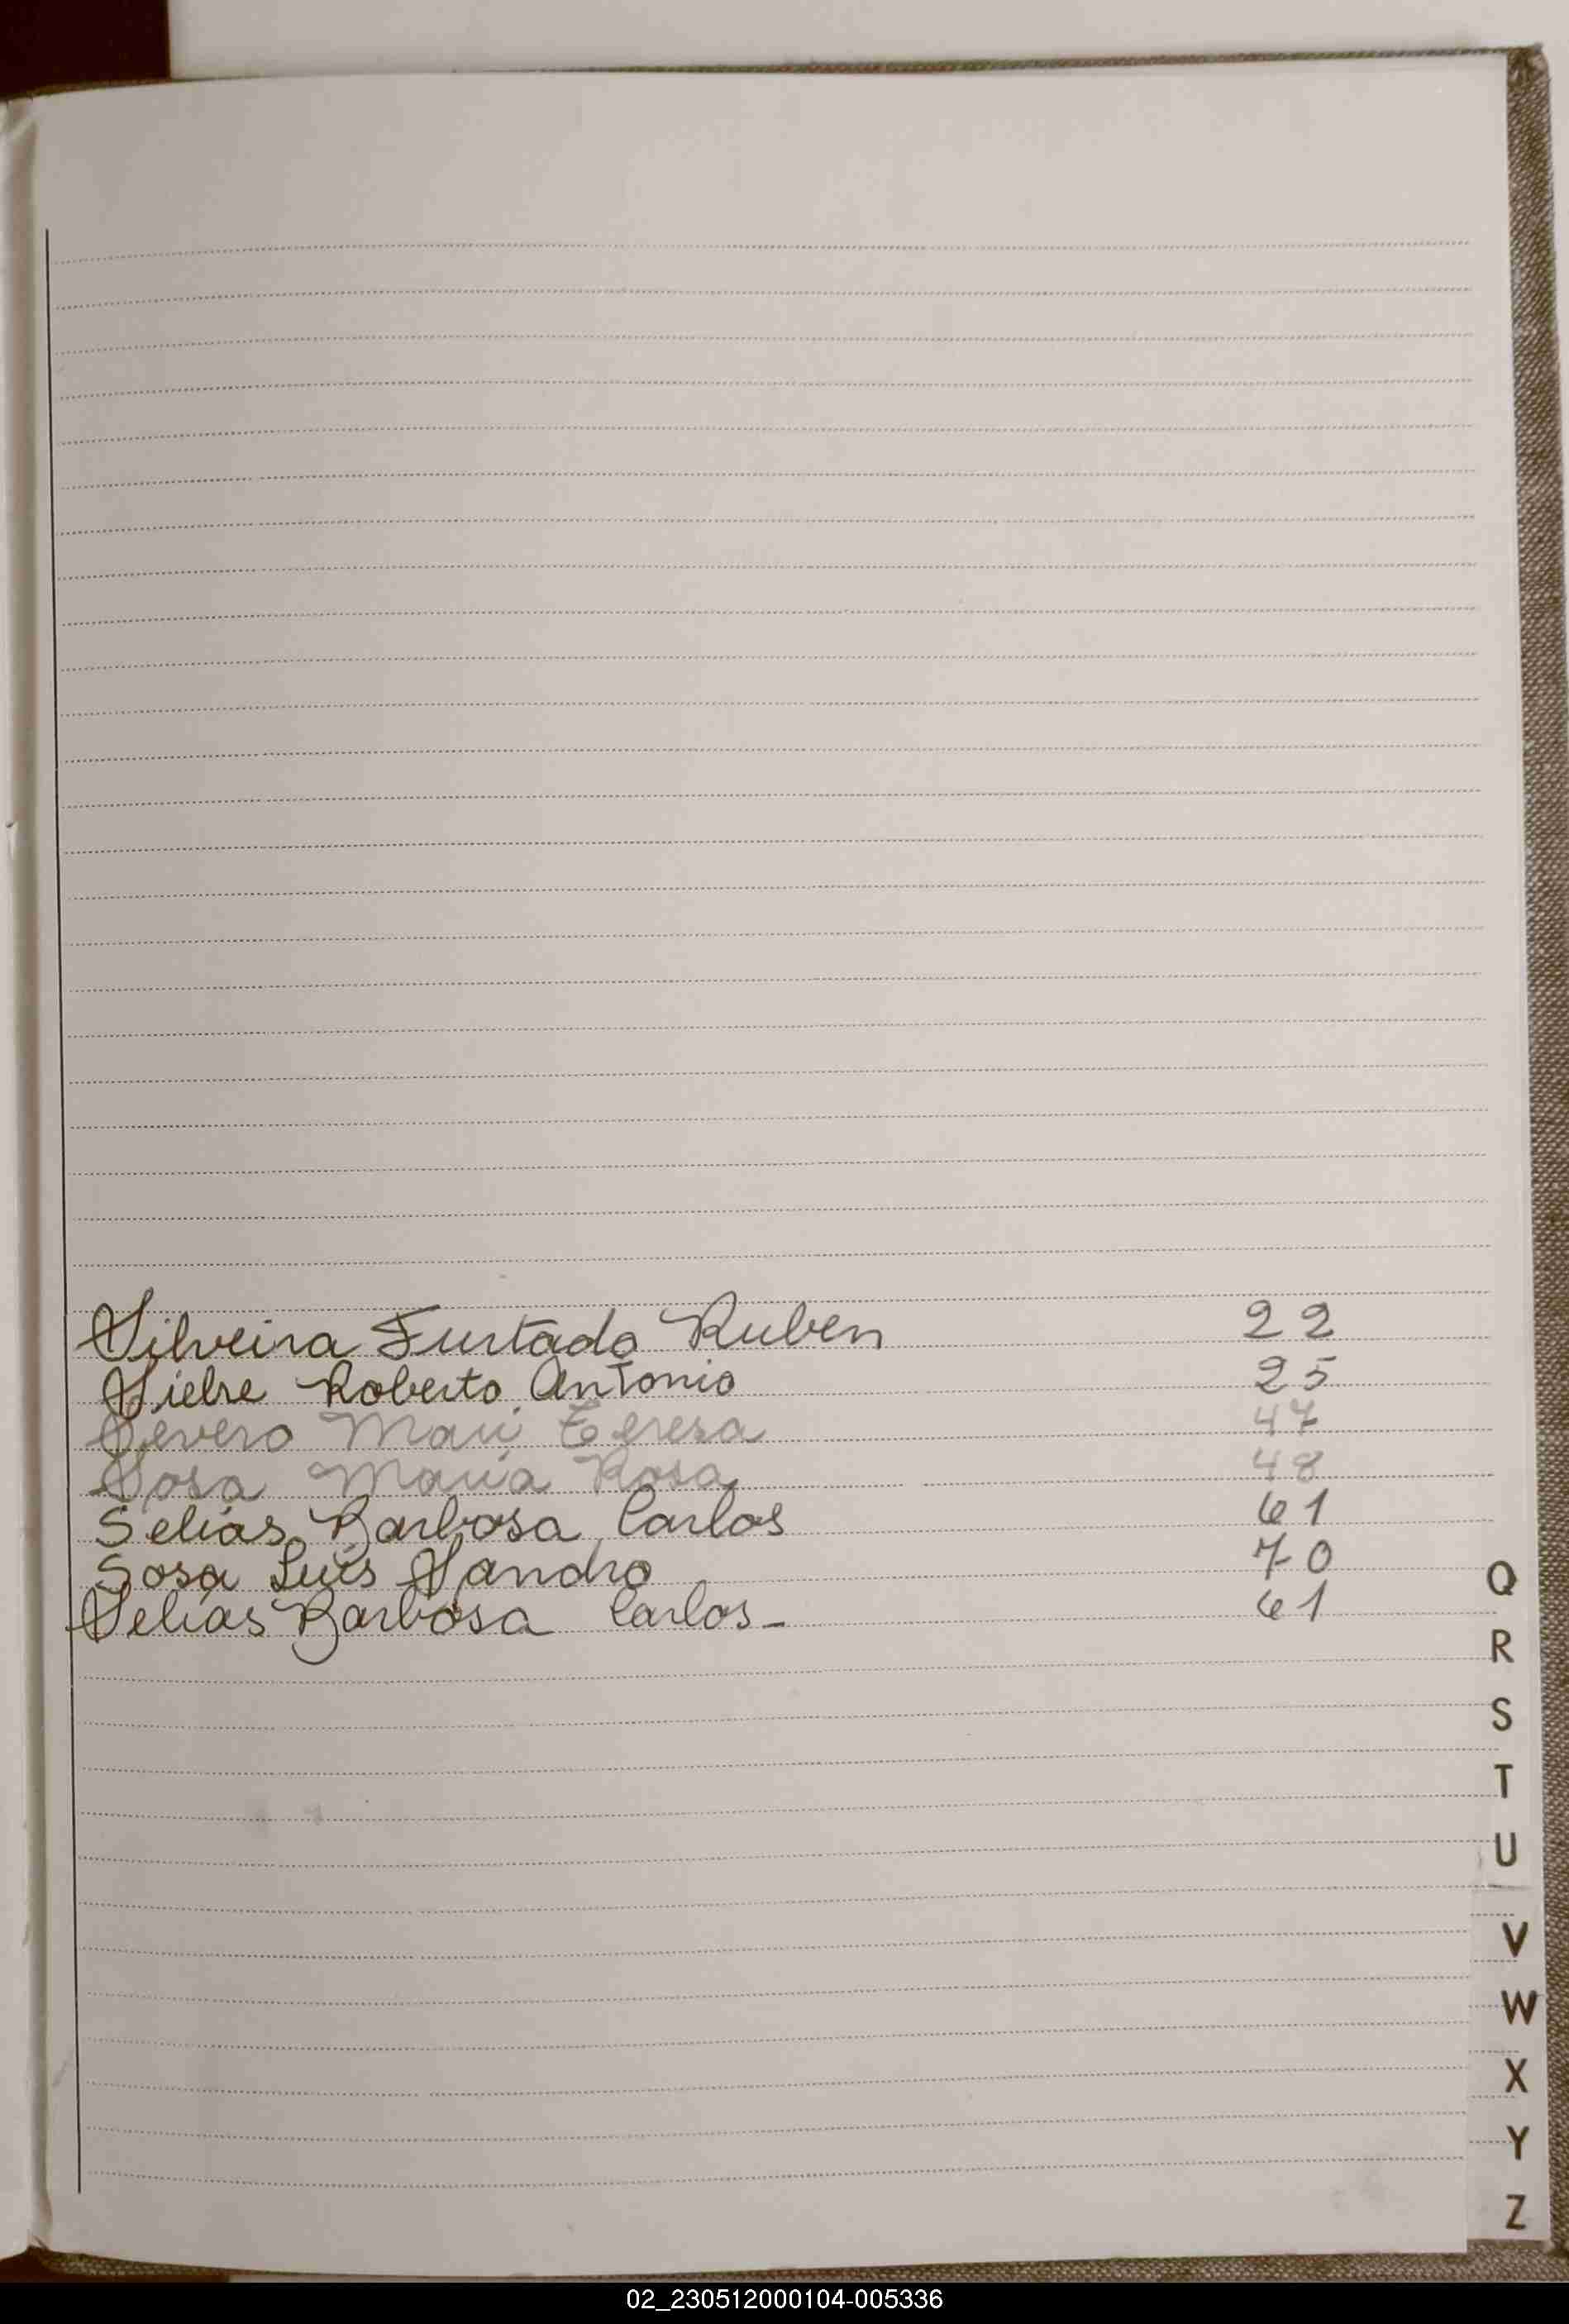 Silveira Furtado Ruben 22
Sielre Roberto Antonio 25
Severo Mari Teresa 47
Sosa Maria Rosa 48
Selias Barbosa Carlos 61
Sosa Luis Sandro 70
Selias Barbosa Carlos - 61
Q
R
S
T
U
V
W
X
Y
Z
02_230512000104-005336